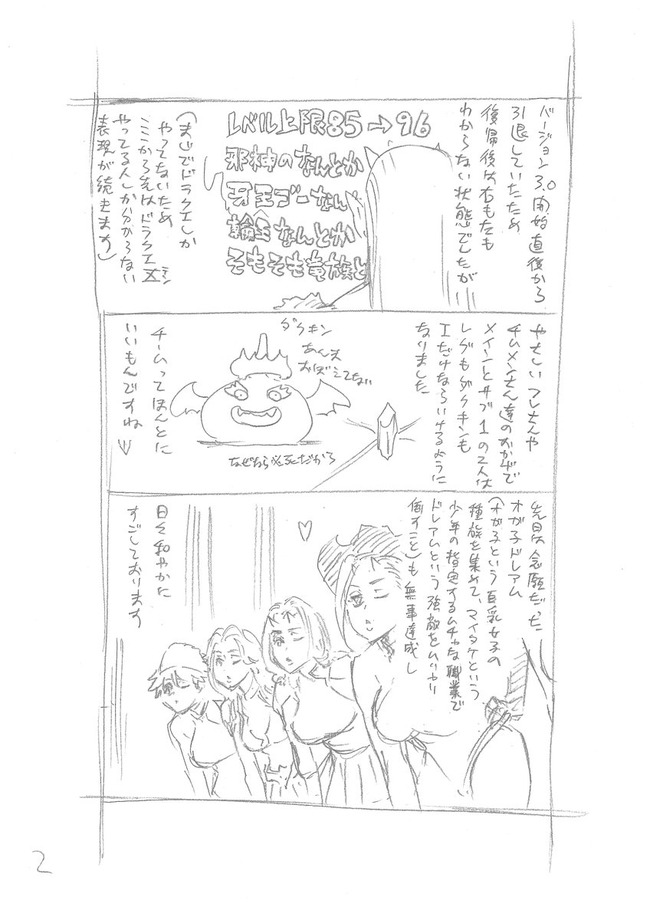 バージョン3.0開始直後から
引退していたため
復帰後は右も左も
わからない状態でしたが
レベル上限85→96
邪神のなんとか
牙王ゴーなん
輪王なんとか
そもそも竜族と
(まじでドラクエしか
やってないため
ここから先はドラクエⅩ
やってる人しか分からない
表現が続きます)
やさしいフレさんや
チームメンさん達のおかげで
メインとサブ1の2人は
レグもダクキンも
Ⅰだけならいけるように
なりました
ダクキン
あんま
おぼえてない
なぜなら必死だから
チームってほんとに
いいもんですね
先日は念願だった
オガ子ドレアム
(オガ子という巨乳女子の
種族を集めてマイタケという
少年の指定するムチャな職業で
ドレアムという強敵をムリヤリ
倒すこと)も無事達成し
日々和やかに
すごしております
2